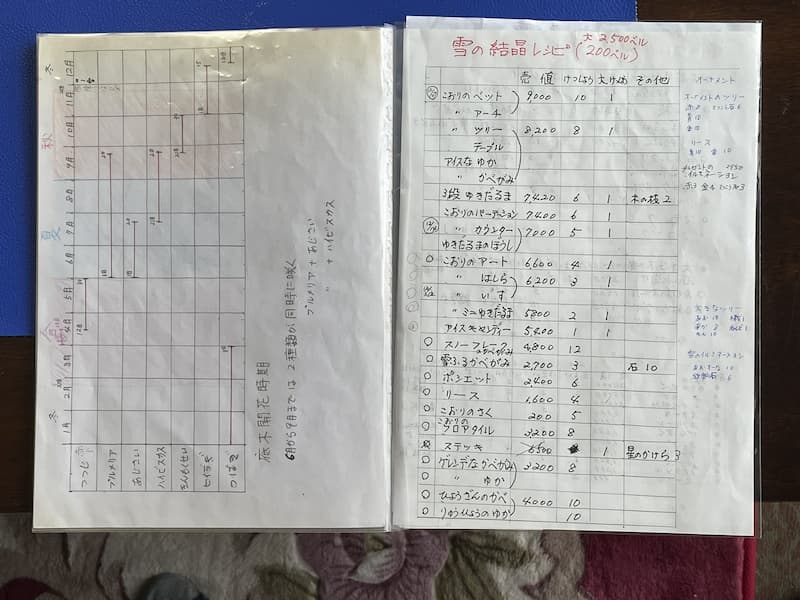 冬
秋
夏
春
冬
12月
11月
10月
9月
8月
7月
6月
5月
4月
3月
2月
1月
つつじ
プルメリア
あじさい
ハイビスカス
きんもくせい
つばき
底木開花時期
6月から9月までは2種類が同時に咲く
プルメリア + あじさい
〃 + ハイビスカス
雪の結晶レシピ
大2,500ベル
(200ベル)
売値 けっしょう 大けっしょう その他
こおりのベット 9,000 10 1
〃 アーチ
〃 ツリー 8,200 8 1
〃 テーブル
アイスなゆか
〃 かべがみ
3段ゆきだるま 7,420 6 1 木の枝2
こおりのパーテーション 7,400 6 1
〃 カウンター 7,000 5 1
ゆきだるまのぼうし
こおりのアート 6,600 4 1
〃 はしら 6,200 3 1
〃 いす
〃 ミニゆきだるま 5800 2 1
アイスキャンディー 5,400 1 1
スノーフレークのかべがみ 4,800 12
雪ふるかべがみ 2,700 3 石10
ポシェット 2400 6
リース 1,600 4
こおりのさく 200 5
こおりのフロアタイル 3,200 8
ステッキ 6500 1 星のかけら3
ゲレンデなかべがみ 3200 8
〃 ゆか
ひょうざんのかべ 4000 10
りゅうひょうのゆか 10
オーナメント
オーナメントのツリー
リース
イルミネーション
大きなツリー